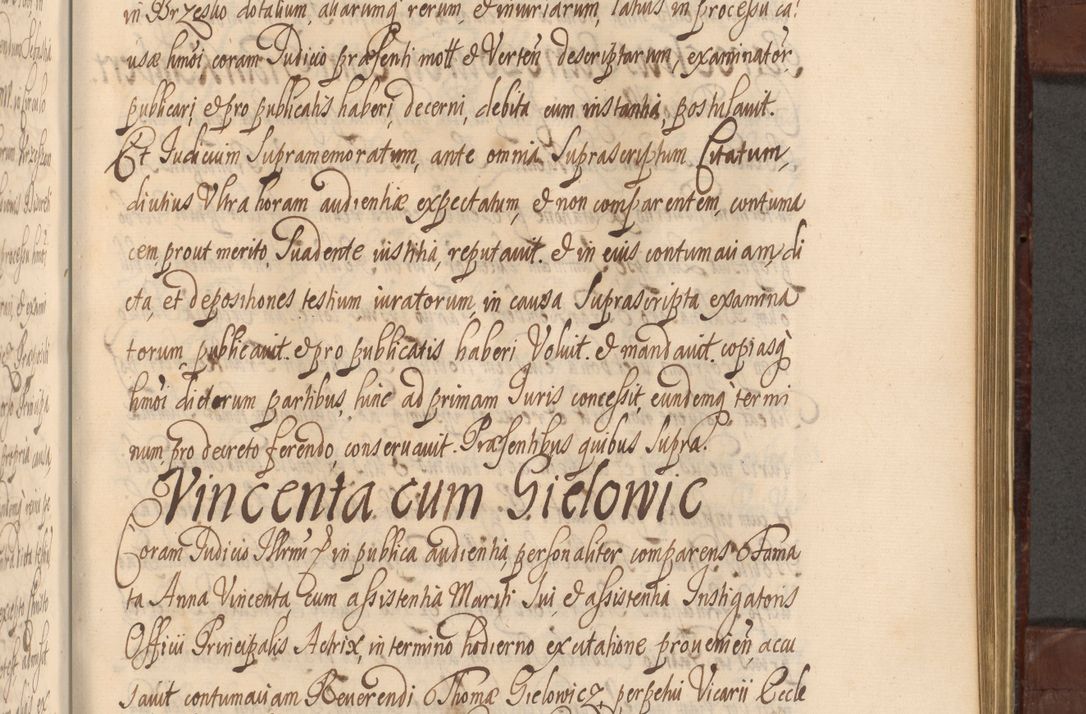 in Brzesko dotalium, aliarumq rerum, et iniuriarum, latius in processu ca
usæ hmoi coram Judicio præsenti mott et Verteñ descriptarum, examinator,
publicari, et pro publicatis haberi, decerni, debita cum instantia, postulauit.
Et Judicium Supramemoratum, ante omnia Suprascriptum Citatum,
diutius Ultra horam audientiæ expectatum, et non comparentem, contuma
cem prout merito, Suadente iustitia, reputauit. et in eius contumaciam, di
cta, et depositiones testium iuratorum, in causa Suprascripta examina
torum, publicauit. et pro publicatis haberi Voluit. et mandauit. copiasq
hmoi dictorum partibus, hinc ad primam Juris concessit, eundemq termi
num, pro decreto ferendo, conseruauit. Præsentibus quibus Supra.
Vincenta cum Gielowic
Coram Judicio Illrmi P in publica audientia, personaliter comparens Fama
ta Anna Vincenta cum assistentia Mariti Sui et assistentia Instigatoris
Officii Principalis Actrix, in termino hodierno ex citatione prouenieñ, accu
sauit contumaciam Reuerendi Thomæ Gielowicz, perpetui Vicarii Eccle